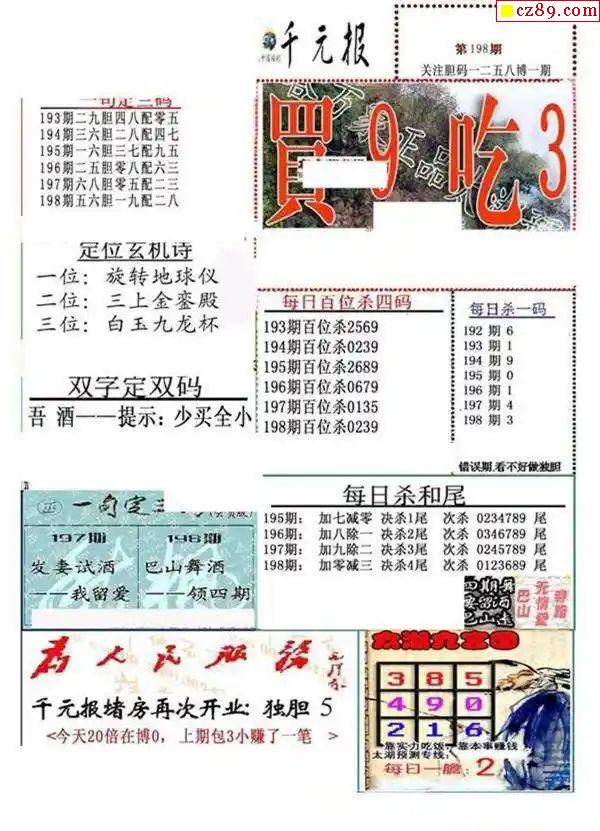 cz89.com
千元报
第198期
关注胆码一二五八博一期
一句定三码
193期二九胆四八配零五
194期三六胆二八配四七
195期一六胆三七配九五
196期二五胆零八配六三
197期六八胆零五配二三
198期五六胆一九配二八
買9吃3
定位玄机诗
一位: 旋转地球仪
二位: 三上金銮殿
三位: 白玉九龙杯
双字定双码
吾 酒——提示: 少买全小
每日百位杀四码
193期百位杀2569
194期百位杀0239
195期百位杀2689
196期百位杀0679
197期百位杀0135
198期百位杀0239
每日杀一码
192 期 6
193 期 1
194 期 9
195 期 0
196 期 1
197 期 4
198 期 3
错误期,看不好做独胆
每日杀和尾
195期: 加七减零 决杀1尾 次杀 0234789 尾
196期: 加八除一 决杀2尾 次杀 0347789 尾
197期: 加九除二 决杀3尾 次杀 0245789 尾
198期: 加零减三 决杀4尾 次杀 0123689 尾
正 一句定三
197期
发妻试酒
——我留爱
198期
巴山舞酒
——领四期
无情爱
巴山
为人民服务
千元报堵房再次开业: 独胆 5
<今天20倍在博0, 上期包3小赚了一笔 >
太湖九宫图
3 8 5
4 9 0
2 1 6
靠实力吃饭, 靠本事赚钱
太湖预测专线:
每日一胆: 2